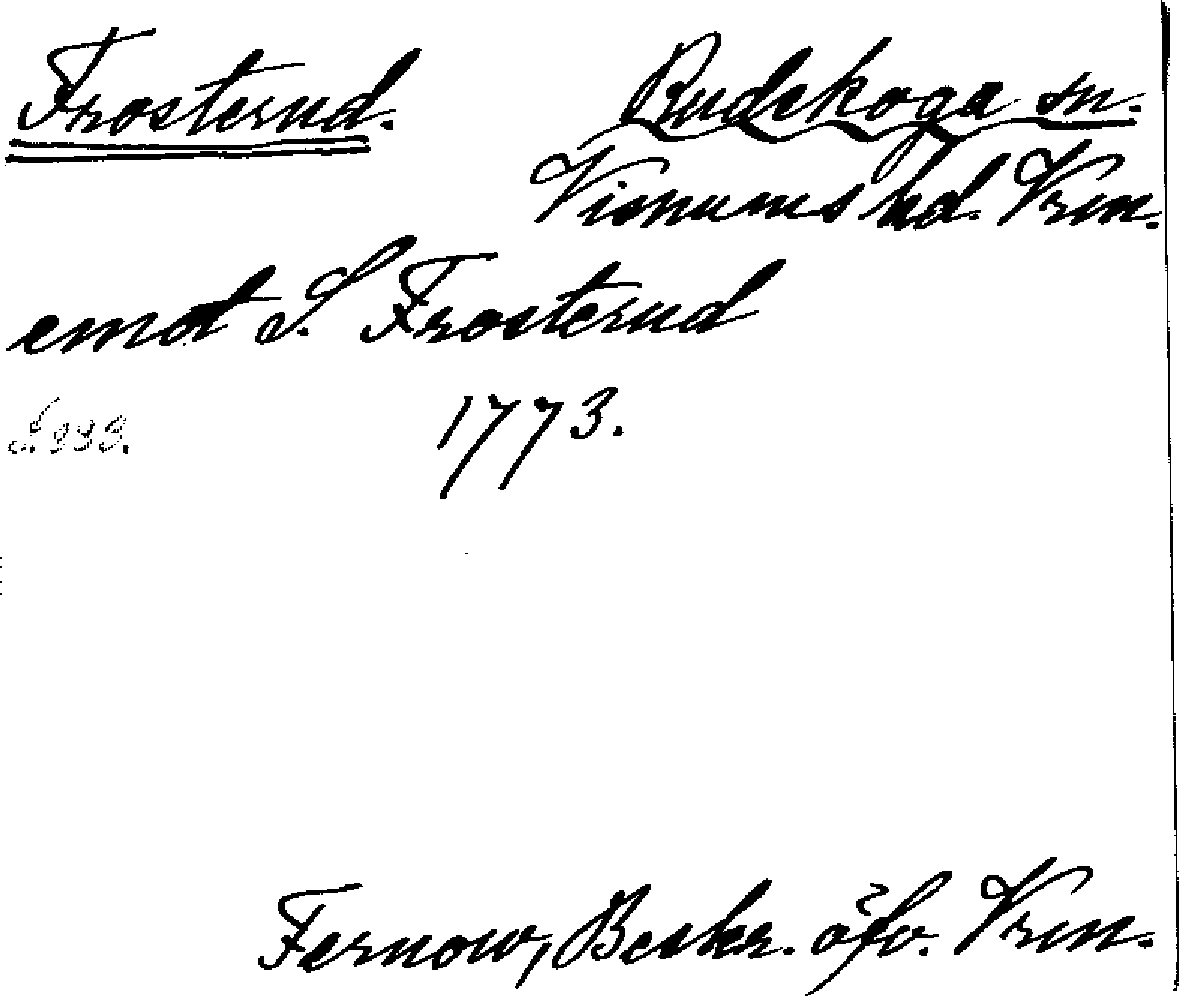 Frosterud.
Rudskoga sn.
Visnums hd. Vrm.
emot S. Frosterud
1773.
Fernow, Beskr. öfv. Vrm.